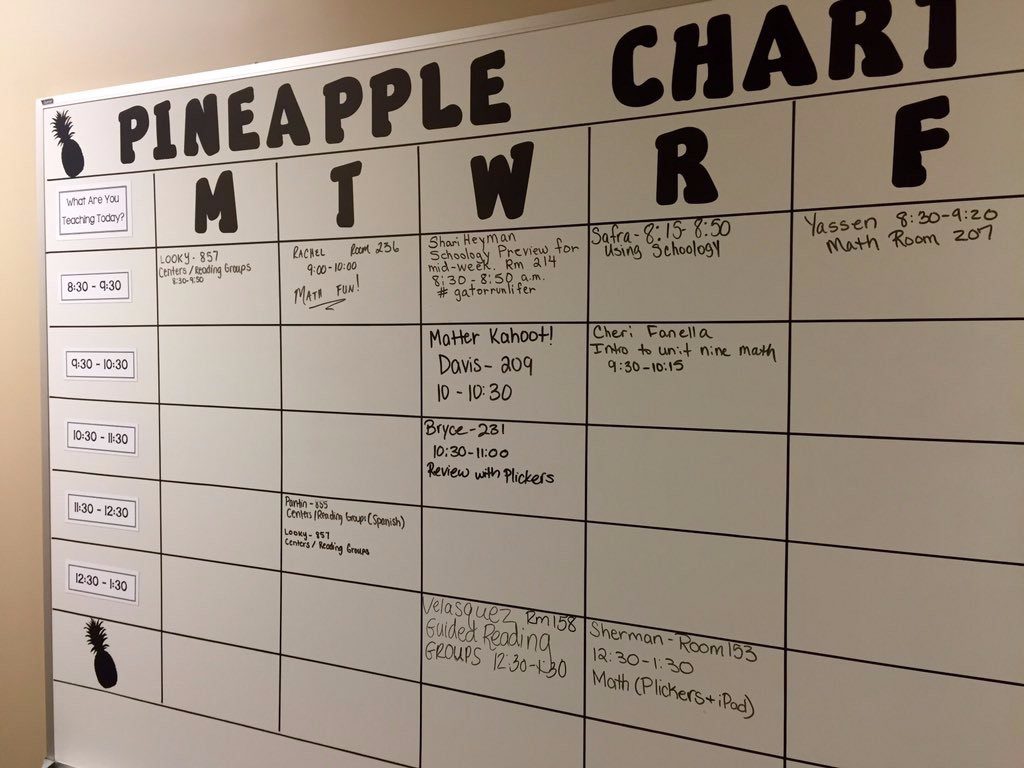 PINEAPPLE CHART
What Are You
Teaching Today?
M
T
W
R
F
8:30 - 9:30
LOOKY - 857
Centers / Reading Groups
8:30-9:50
RACHEL ROOM 236
9:00-10:00
MATH FUN!
Shari Heyman
Schoology Preview for
mid-week. Rm 214
8:30 - 8:50 a.m.
# gatorrunlifer
Safra - 8:15- 8:50
Using Schoology
Yassen 8:30-9:20
Math Room 207
9:30 - 10:30
Matter Kahoot!
Davis - 209
10 - 10:30
Cheri Fanella
Intro to unit nine math
9:30-10:15
10:30 - 11:30
Bryce - 231
10:30-11:00
Review with Plickers
11:30 - 12:30
Pantin - 855
Centers /Reading Groups (Spanish)
Looky - 857
Centers / Reading Groups
12:30 - 1:30
Velasquez Rm 158
Guided Reading
GROUPS 12:30-1:30
Sherman - Room 153
12:30-1:30
Math (Plickers + iPad)